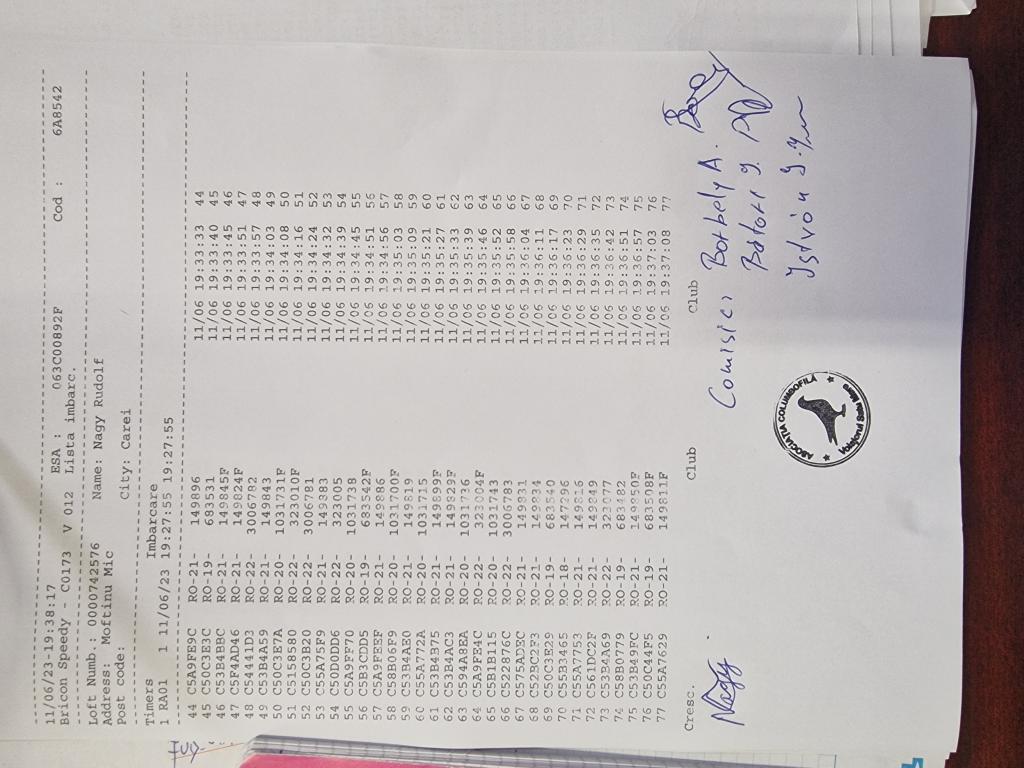 11/06/23-19:38:17
Bricon Speedy - C0173 V 012 ESA : 063C00892F Cod : 6A8542
Lista imbarc.
Loft Numb.: 0000742576 Name: Nagy Rudolf
Address: Moftinu Mic City: Carei
Post code:
Timers Imbarcare
1 RA01 1 11/06/23 19:27:55 19:27:55
44 C5A9FE9C RO-21- 149896 11/06 19:33:33 44
45 C50C3E3C RO-19- 683531 11/06 19:33:40 45
46 C53B4BBC RO-21- 149845F 11/06 19:33:45 46
47 C5F4AD46 RO-21- 149824F 11/06 19:33:51 47
48 C54441D3 RO-22- 3006782 11/06 19:33:57 48
49 C53B4A59 RO-21- 149843 11/06 19:34:03 49
50 C50C3E7A RO-20- 1031731F 11/06 19:34:08 50
51 C5158580 RO-22- 323010F 11/06 19:34:16 51
52 C50C3B20 RO-22- 3006781 11/06 19:34:24 52
53 C55A75F9 RO-21- 149883 11/06 19:34:32 53
54 C50D0DD6 RO-22- 323005 11/06 19:34:39 54
55 C5A9FF70 RO-20- 1031738 11/06 19:34:45 55
56 C5B3CDD5 RO-19- 683542F 11/06 19:34:51 56
57 C5A9FEEF RO-21- 149886 11/06 19:34:56 57
58 C58B05F9 RO-20- 1031700F 11/06 19:35:03 58
59 C53B4AE0 RO-21- 149819 11/06 19:35:09 59
60 C55A772A RO-20- 1031715 11/06 19:35:21 60
61 C53B4B75 RO-21- 149899F 11/06 19:35:27 61
62 C53B4AC3 RO-21- 149829F 11/06 19:35:33 62
63 C594A8EA RO-20- 1031736 11/06 19:35:39 63
64 C5A9FE4C RO-22- 323004F 11/06 19:35:46 64
65 C5B1B115 RO-20- 1031743 11/06 19:35:52 65
66 C522876C RO-22- 3006783 11/06 19:35:58 66
67 C575ADEC RO-21- 149831 11/06 19:36:04 67
68 C52BC2F3 RO-21- 149834 11/06 19:36:11 68
69 C50C3E29 RO-19- 683540 11/06 19:36:17 69
70 C55B3465 RO-18- 147296 11/06 19:36:23 70
71 C55A7753 RO-21- 149816 11/06 19:36:29 71
72 C561DC2F RO-21- 149849 11/06 19:36:35 72
73 C53B4A69 RO-22- 11/06 19:36:42 73
74 C58B0779 RO-19- 683482 11/06 19:36:51 74
75 C53B49FC RO-21- 149850F 11/06 19:36:57 75
76 C50C44F5 RO-19- 683508F 11/06 19:37:03 76
77 C55A7629 RO-21- 149811F 11/06 19:37:08 77
Cresc. Club Club
Nagy
Comisie: Borbely A.
Batori J.
István J.
ASOCIATIA COLUMBOFILA
Voiajorul Satu Mare